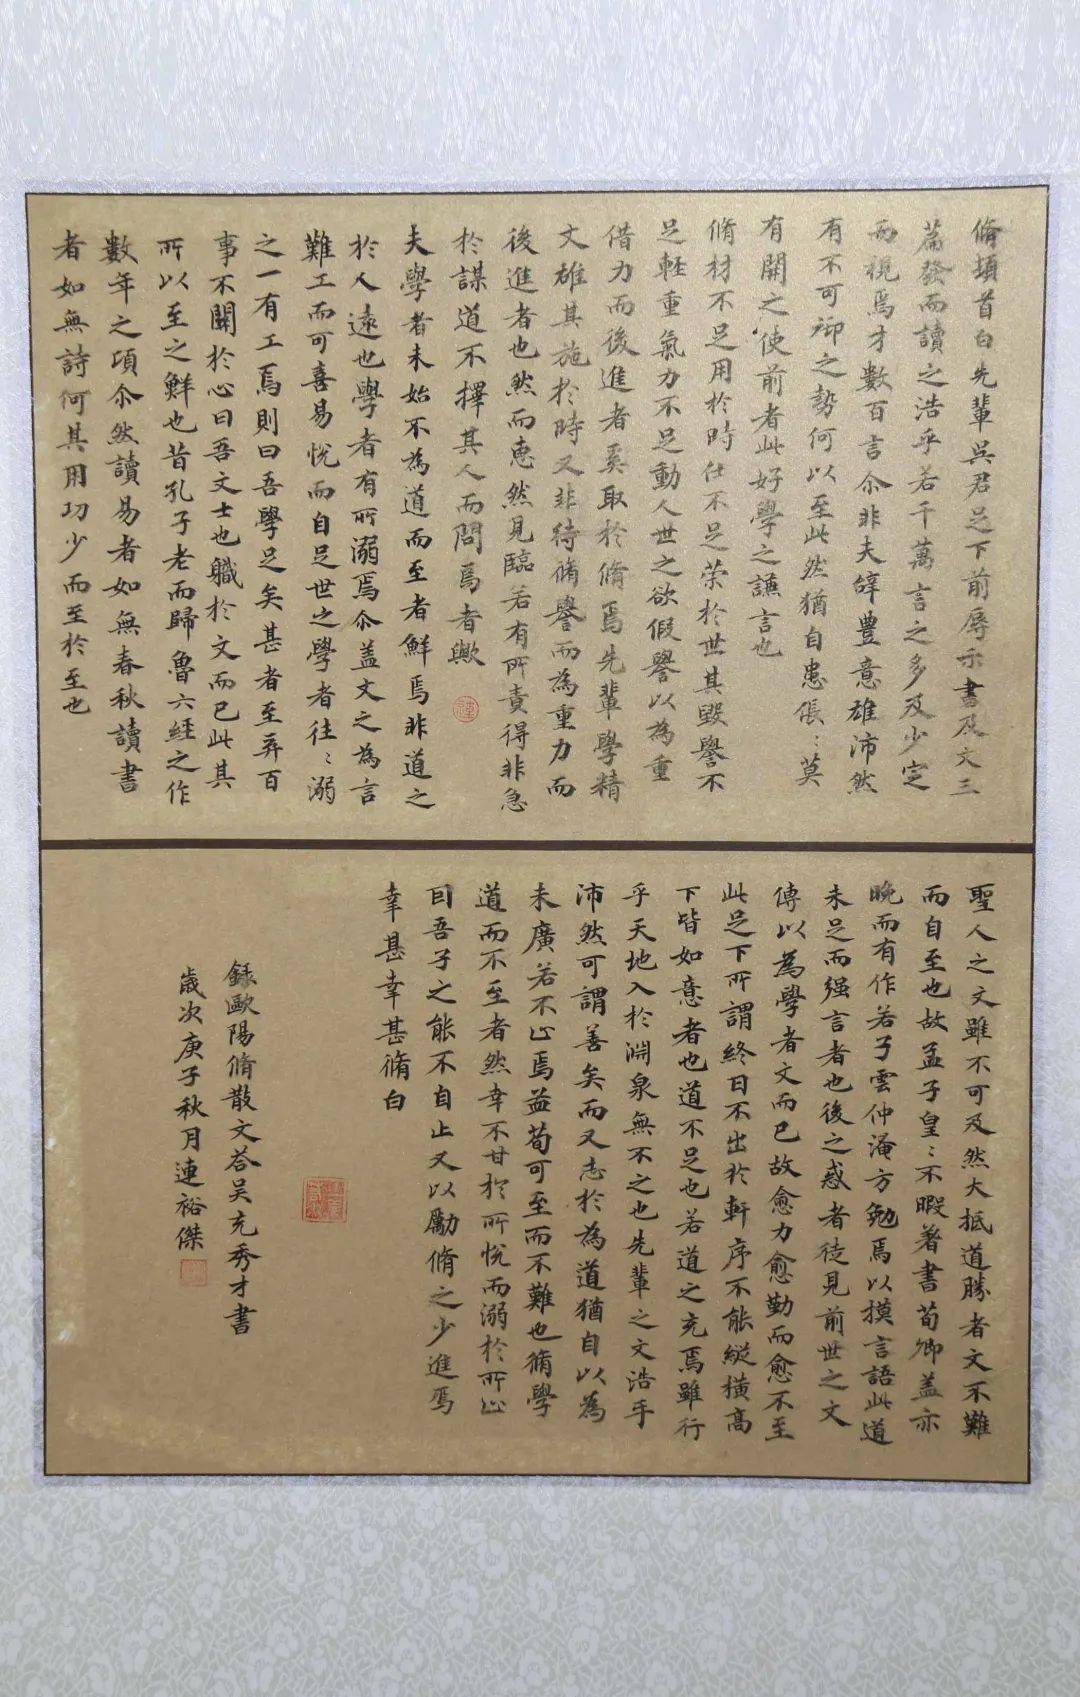 脩頓首白先輩吳君足下前辱示書及文三
篇發而讀之浩乎若千萬言之多及少定
而視焉才數百言尒非夫辭豊意雄沛然
有不可禦之勢何以至此然猶自患倀〻莫
有開之使前者此好學之謙言也
脩材不足用於時仕不足荣於世其毀譽不
足軽重氣力不足動人世之欲假譽以為重
借力而後進者奚取於脩焉先輩學精
文雄其施於時又非待脩譽而為重力而
後進者也然而惠然見臨若有所責得非急
於謀道不擇其人而問焉者歟
連
夫學者未始不為道而至者鮮焉非道之
於人遠也學者有所溺焉尒盖文之為言
難工而可喜易悅而自足世之學者往〻溺
之一有工焉則曰吾學足矣甚者至弃百
事不關於心曰吾文士也職於文而已此其
所以至之鮮也昔孔子老而歸魯六經之作
數年之項尒然讀易者如無春秋讀書
者如無詩何其用功少而至於至也
聖人之文雖不可及然大抵道勝者文不難
而自至也故孟子皇〻不暇著書荀卿盖亦
晚而有作若子雲仲淹方勉焉以摸言語此道
未足而强言者也後之惑者徒見前世之文
傳以為學者文而已故愈力愈勤而愈不至
此足下所謂終日不出於軒序不能縱橫高
下皆如意者也道不足也若道之充焉雖行
乎天地入於淵泉無不之也先輩之文浩乎
沛然可謂善矣而又志於為道猶自以為
未廣若不止焉益荀可至而不難也脩學
道而不至者然幸不甘於所悅而溺於所止
囙吾子之能不自止又以勵脩之少進焉
幸甚幸甚脩白
錄歐陽脩散文荅吴充秀才書
歲次庚子秋月連裕傑